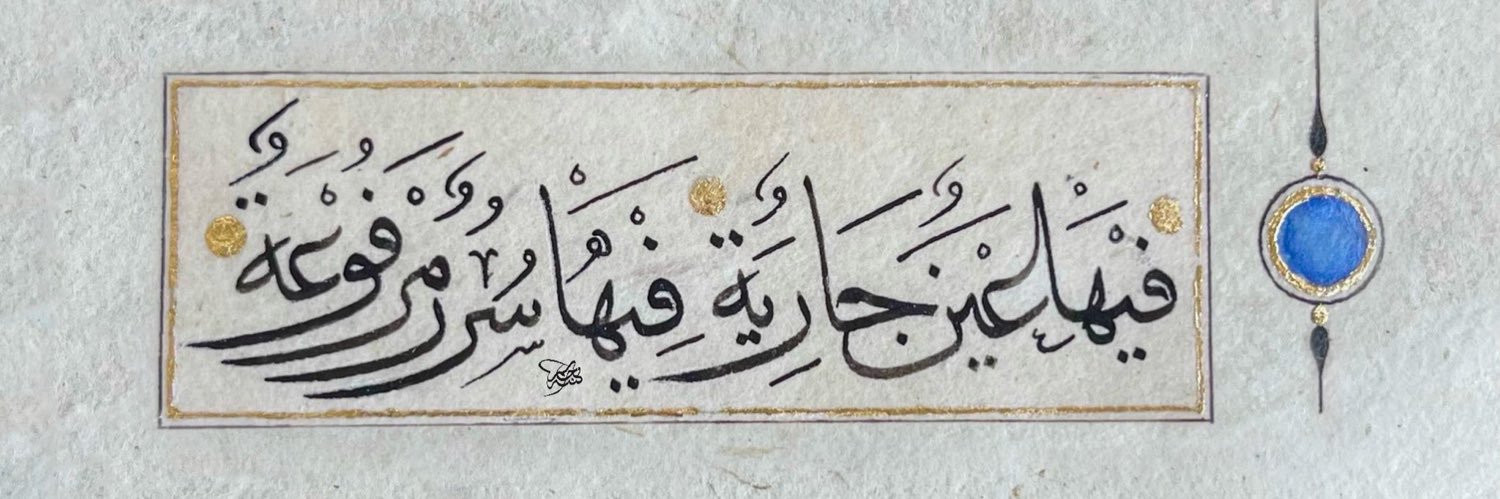 فِيْهَا عَيْنٌ جَارِيَةٌ فِيْهَا سُرُرٌ مَرْفُوْعَةٌ